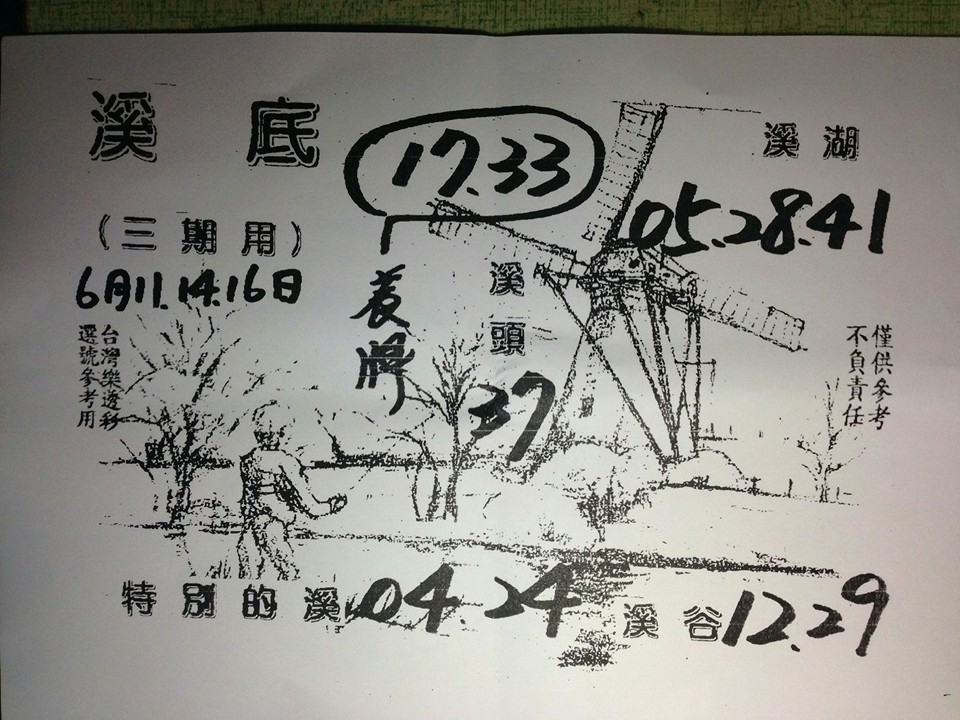 溪底
17.33
溪湖
05.28.41
(三期用)
6月11.14.16日
養牌
溪頭
37
台灣樂透彩
選號參考用
僅供參考
不負責任
特別的溪 04.24
溪谷 12.29